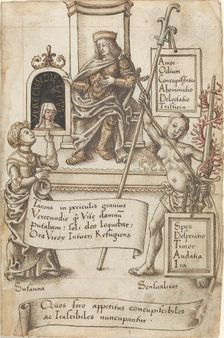 VERECVNDIE
Amor
Odium
Concupiscentia
Abominatio
Delectatio
Tristicia
Iacens in periculis gravius
Verecundie q̃ Vite damnũ
putabam: soli deo loquebar:
Ora Viros Intueri Refugiens
Spes
Desperatio
Timor
Audatia
Ira
Susanna
Sensualitas
Quos fero appetitus concupiscibiles
ac Irascibiles nuncupantur